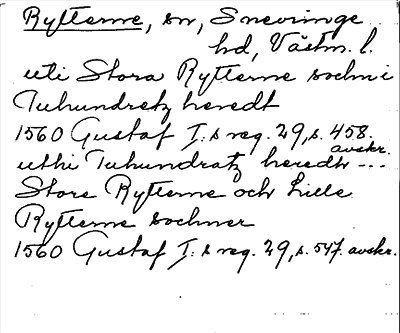 Rytterne, sn, Snevringe
hd, Västm. l.
uti Stora Rytterne sochn i
Tuhundretz heredt
1560 Gustaf I:s reg. 29, s. 458.
avskr.
uthi Tuhundratz heredh ---
Store Rytterne och Lille
Rytterne sochner
1560 Gustaf I:s reg. 29, s. 547. avskr.